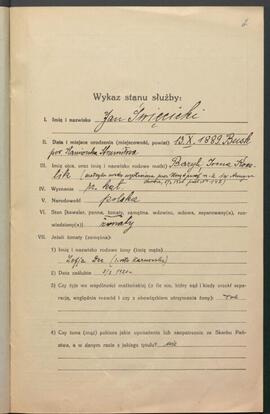 2
Wykaz stanu służby:
I. Imię i nazwisko Jan Święcicki
II. Data i miejsce urodzenia (miejscowość, powiat) 13.X.1889 Busk
pow. Kamionka Strumiłowa
III. Imię ojca, oraz imię i nazwisko rodowe matki Bazyli, Irena
IV. Wyznanie rz. kat.
V. Narodowość polska
VI. Stan (kawaler, panna, żonaty, zamężna, wdowiec, wdowa, separowany(a), rozwiedziony(a)) żonaty
VII. Jeżeli żonaty (zamężna):
1) Imię i nazwisko rodowe żony (imię męża)
Zofja
2) Data zaślubin
3) Czy żyje we wspólności małżeńskiej (o ile nie, który sąd i kiedy orzekł separację, względnie rozwód i czy z obowiązkiem utrzymania żony) tak
4) Czy żona (mąż) pobiera jakie uposażenie lub zaopatrzenie ze Skarbu Państwa, a w danym razie z jakiego tytułu? nie